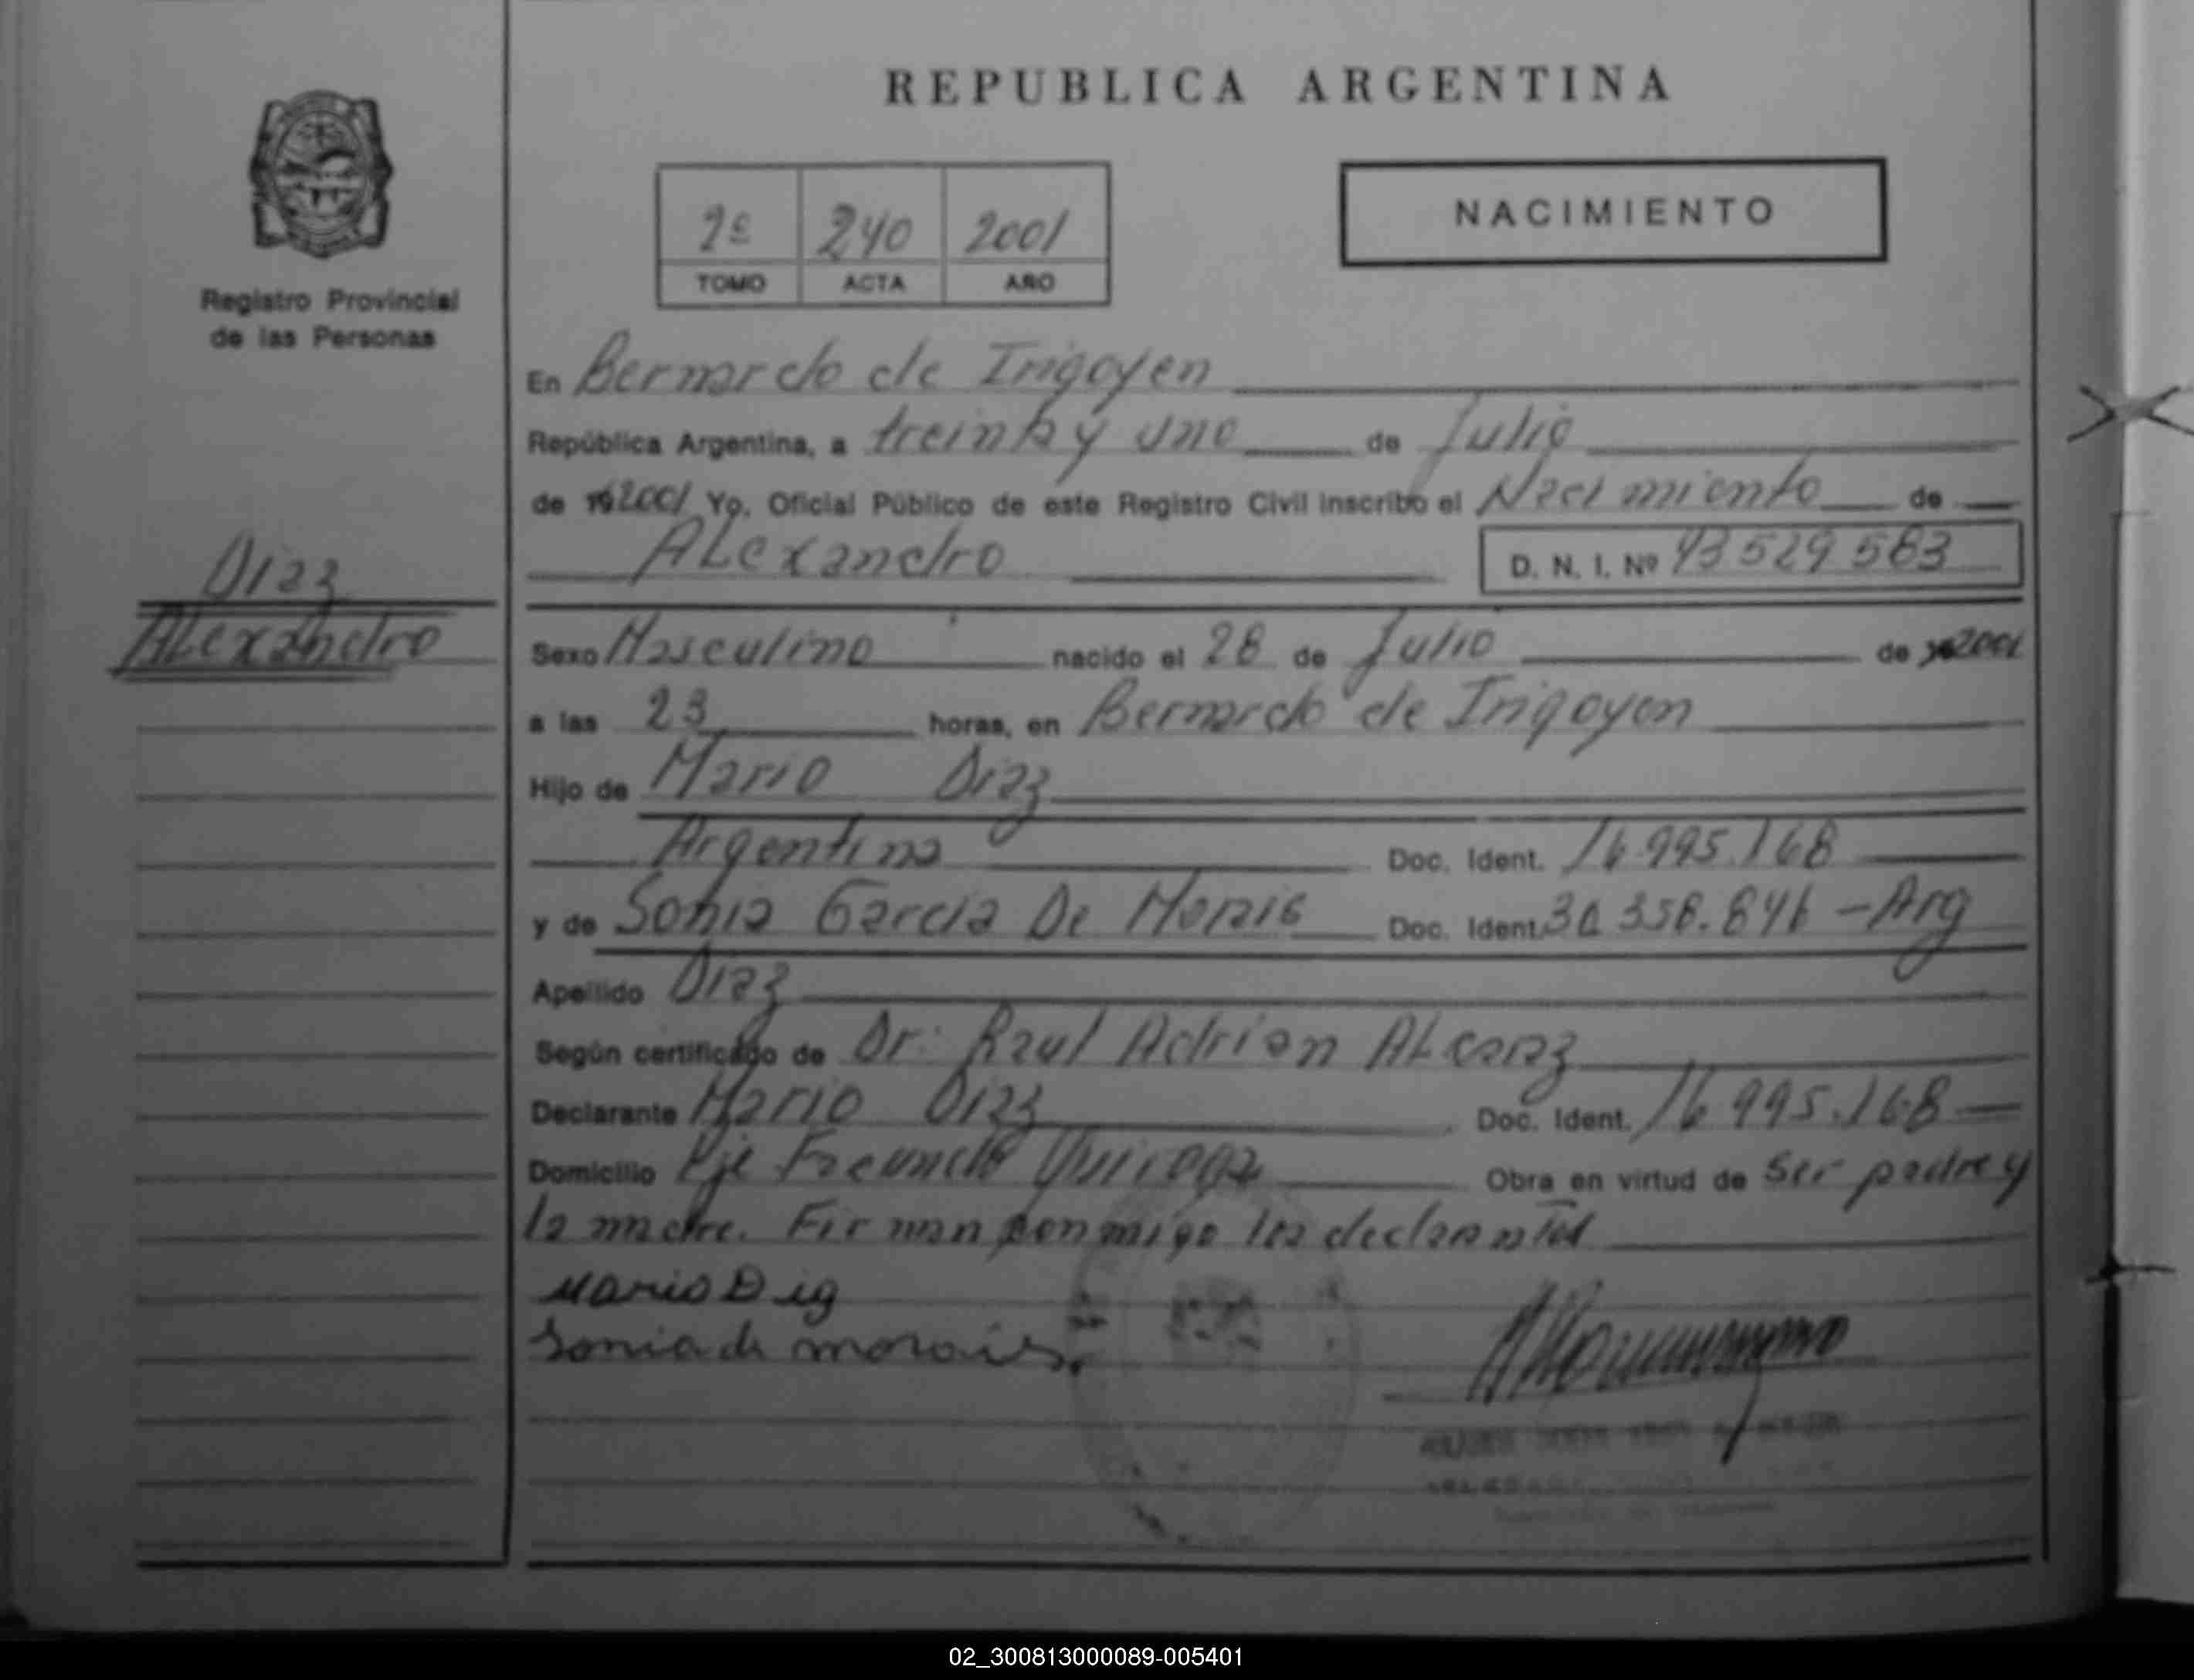 REPUBLICA ARGENTINA
2º 240 2001
TOMO ACTA AÑO
NACIMIENTO
Registro Provincial
de las Personas
Diaz
ALexandro
En Bernardo de Irigoyen
República Argentina, a treinta y uno de Julio
de 192001 Yo, Oficial Público de este Registro Civil inscribo el Nacimiento de
ALexandro D. N. I. Nº 43 529 583
Sexo Masculino nacido el 28 de Julio de 2001
a las 23 horas, en Bernardo de Irigoyen
Hijo de Mario Diaz
Argentina Doc. Ident. 16.995.168
y de Sonia Garcia De Morais Doc. Ident. 358.846 - Arg
Apellido Diaz
Según certificado de Dr: Raul Adrian ALcaraz
Declarante Mario Diaz Doc. Ident. 16 995.168
Domicilio Pje Facundo Quiroga Obra en virtud de Ser padre y
la madre. Firman conmigo los declarantes
Mario Diaz
Sonia de morais.
02_300813000089-005401